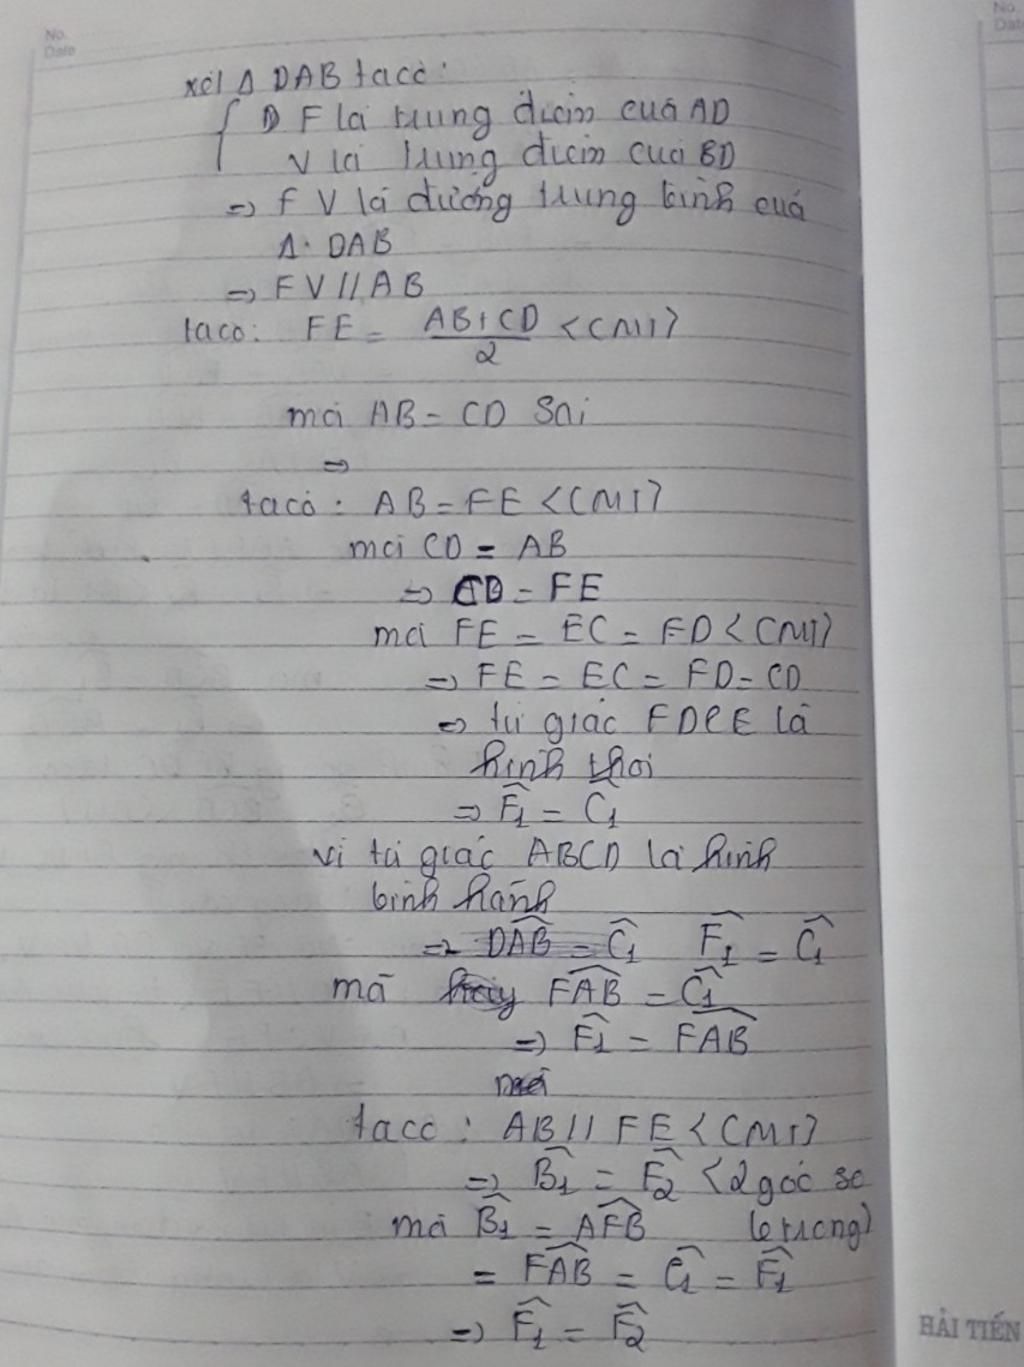 No.
Date
No.
Dat
xét Δ DAB ta có:
{ F là trung điểm của AD
V là trung điểm của BD
=> F V là đường trung bình của
Δ. DAB
=> FV // AB
ta có: FE = (AB + CD)/2 <CMT>
mà AB = CD Sai
=>
ta có : AB = FE <CMT>
mà CD = AB
=> CD = FE
mà FE = EC = FD <CMT>
=> FE = EC = FD = CD
=> tứ giác FDCE là
hình thoi
=> F̂₁ = Ĉ₁
vì tứ giác ABCD là hình
bình hành
=> DAB̂ = Ĉ₁ F̂₁ = Ĉ₁
mà FAB̂ = Ĉ₁
=> F̂₁ = FAB̂
mà
ta có : AB // FE <CMT>
=> B̂₁ = F̂₂ <2 góc so
mà B̂₁ = AFB̂ le trong)
= FAB̂ = Ĉ₁ = F̂₁
=> F̂₁ = F̂₂
HẢI TIẾN